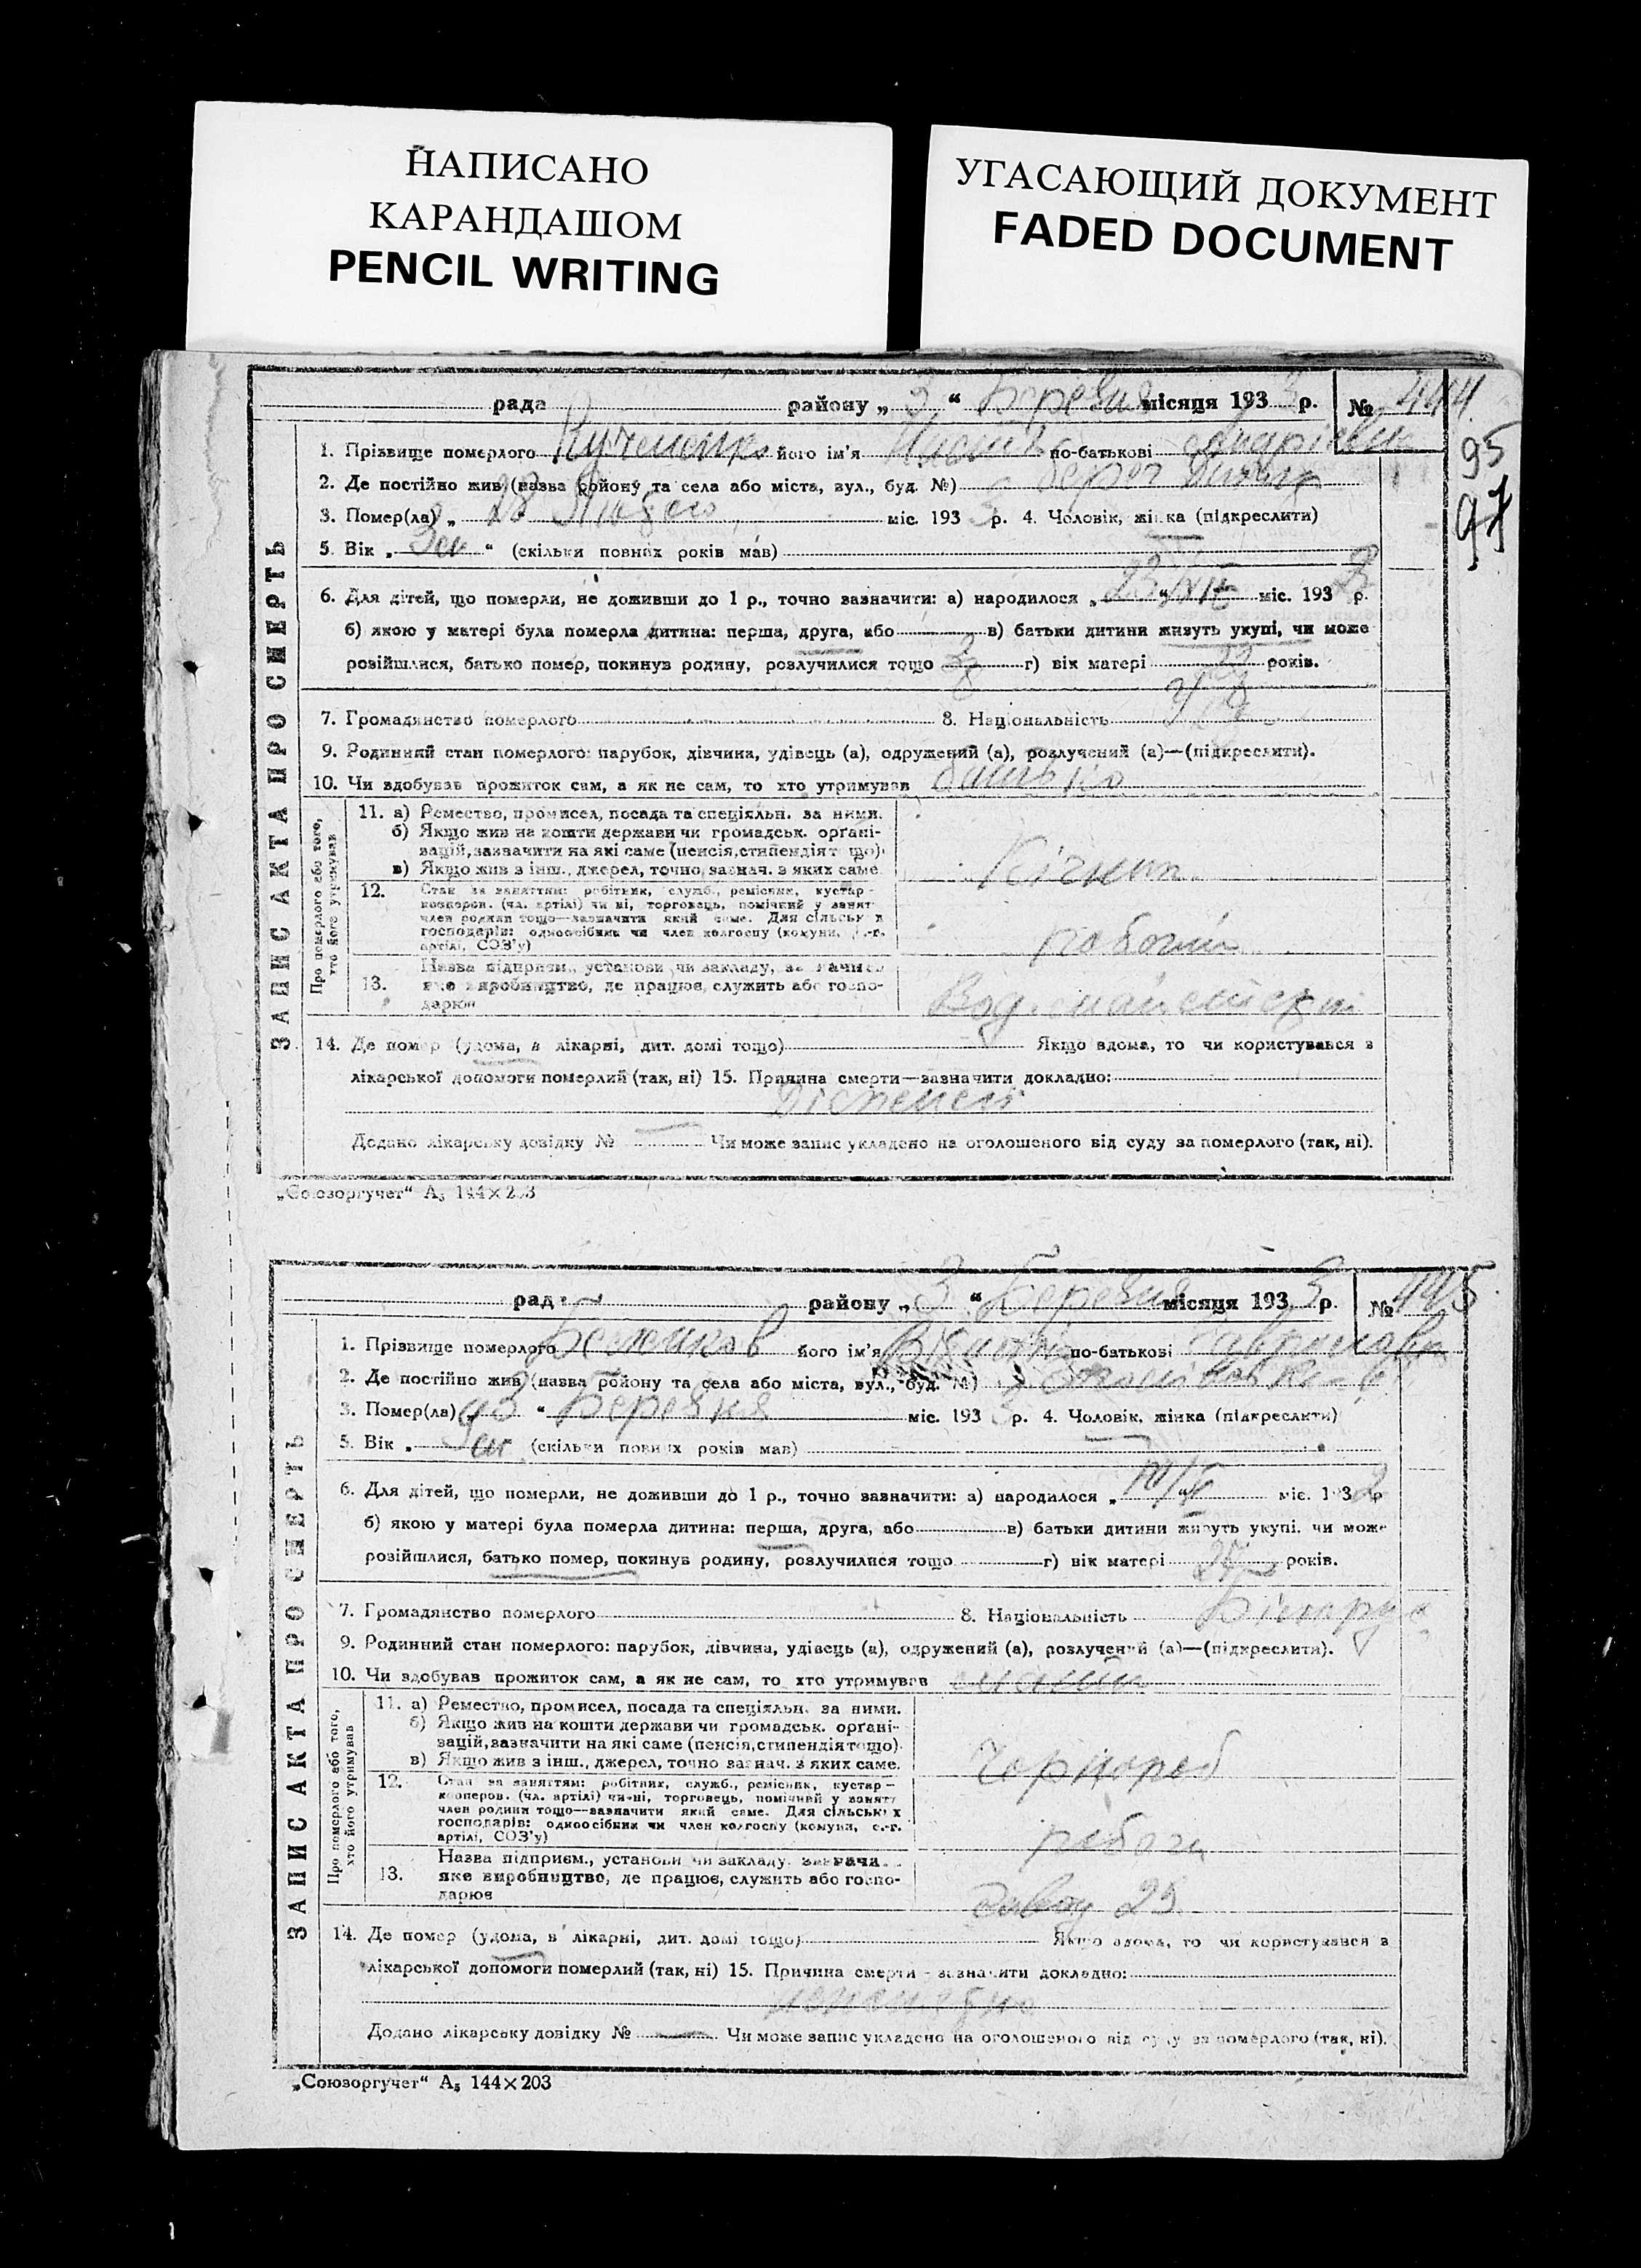 НАПИСАНО
КАРАНДАШОМ
PENCIL WRITING
УГАСАЮЩИЙ ДОКУМЕНТ
FADED DOCUMENT
рада району „ 3 “ Березня місяця 193 3 р. № 444
95
97
1. Прізвище померлого його ім'я по-батькові Андріївна
2. Де постійно жив (назва району та села або міста, вул., буд. №) берег
3. Помер(ла) „ міс. 193 3 р. 4. Чоловік, жінка (підкреслити)
5. Вік „ 3 м “ (скільки повних років мав)
ЗАПИС АКТА ПРО СМЕРТЬ
6. Для дітей, що померли, не доживши до 1 р., точно зазначити: а) народилося „ 23/XII міс. 193 2 р.
б) якою у матері була померла дитина: перша, друга, або в) батьки дитини живуть укупі, чи може
розійшлися, батько помер, покинув родину, розлучилися тощо г) вік матері 22 років.
7. Громадянство померлого 8. Національність
9. Родинний стан померлого: парубок, дівчина, удівець (а), одружений (а), розлучений (а)—(підкреслити).
10. Чи здобував прожиток сам, а як не сам, то хто утримував батько
Про померлого або того, хто його утримував
11. а) Ремество, промисел, посада та спеціяльн. за ними.
б) Якщо жив на кошти держави чи громадськ. орґані-
зацій, зазначити на які саме (пенсія, стипендія тощо).
в) Якщо жив з інш., джерел, точно зазнач. з яких саме.
12. Стан за заняттям: робітник, служб., ремісник, кустар-
кооперов. (чл. артілі) чи ні, торговець, помічний у занятт
член родини тощо—зазначити який саме. Для сільських
господарів: одноосібник чи член колгоспу (комуни, с.-г.
артілі, СОЗ'у)
робочий
13. Назва підприєм., установи чи закладу, зазначи
яке виробництво, де працює, служить або госпо-
дарює
14. Де помер (удома, в лікарні, дит. домі тощо) Якщо вдома, то чи користувався з
лікарської допомоги померлий (так, ні) 15. Причина смерти—зазначити докладно:
Додано лікарську довідку № — Чи може запис укладено на оголошеного від суду за померлого (так, ні).
„Союзоргучет“ А₅ 144×203
рада району „ 3 “ Березня місяця 193 3 р. № 445
1. Прізвище померлого його ім'я по-батькові
2. Де постійно жив (назва району та села або міста, вул., буд. №)
3. Помер(ла) „ “ Березня міс. 193 3 р. 4. Чоловік, жінка (підкреслити)
5. Вік „ (скільки повних років мав)
ЗАПИС АКТА ПРО СМЕРТЬ
6. Для дітей, що померли, не доживши до 1 р., точно зазначити: а) народилося „ міс. 193 2 р.
б) якою у матері була померла дитина: перша, друга, або в) батьки дитини живуть укупі, чи може
розійшлися, батько помер, покинув родину, розлучилися тощо г) вік матері років.
7. Громадянство померлого 8. Національність Білорус
9. Родинний стан померлого: парубок, дівчина, удівець (а), одружений (а), розлучений (а)—(підкреслити).
10. Чи здобував прожиток сам, а як не сам, то хто утримував мати
Про померлого або того, хто його утримував
11. а) Ремество, промисел, посада та спеціяльн. за ними.
б) Якщо жив на кошти держави чи громадськ. орґані-
зацій, зазначити на які саме (пенсія, стипендія тощо).
в) Якщо жив з інш., джерел, точно зазнач. з яких саме.
Чорнороб
12. Стан за заняттям: робітник, служб., ремісник, кустар-
кооперов. (чл. артілі) чи ні, торговець, помічний у занятт
член родини тощо—зазначити який саме. Для сільських
господарів: одноосібник чи член колгоспу (комуни, с.-г.
артілі, СОЗ'у)
робоч
13. Назва підприєм., установи чи закладу, зазначи
яке виробництво, де працює, служить або госпо-
дарює
завод 25
14. Де помер (удома, в лікарні, дит. домі тощо) Якщо вдома, то чи користувався з
лікарської допомоги померлий (так, ні) 15. Причина смерти—зазначити докладно:
Додано лікарську довідку № — Чи може запис укладено на оголошеного від суду за померлого (так, ні).
„Союзоргучет“ А₅ 144×203